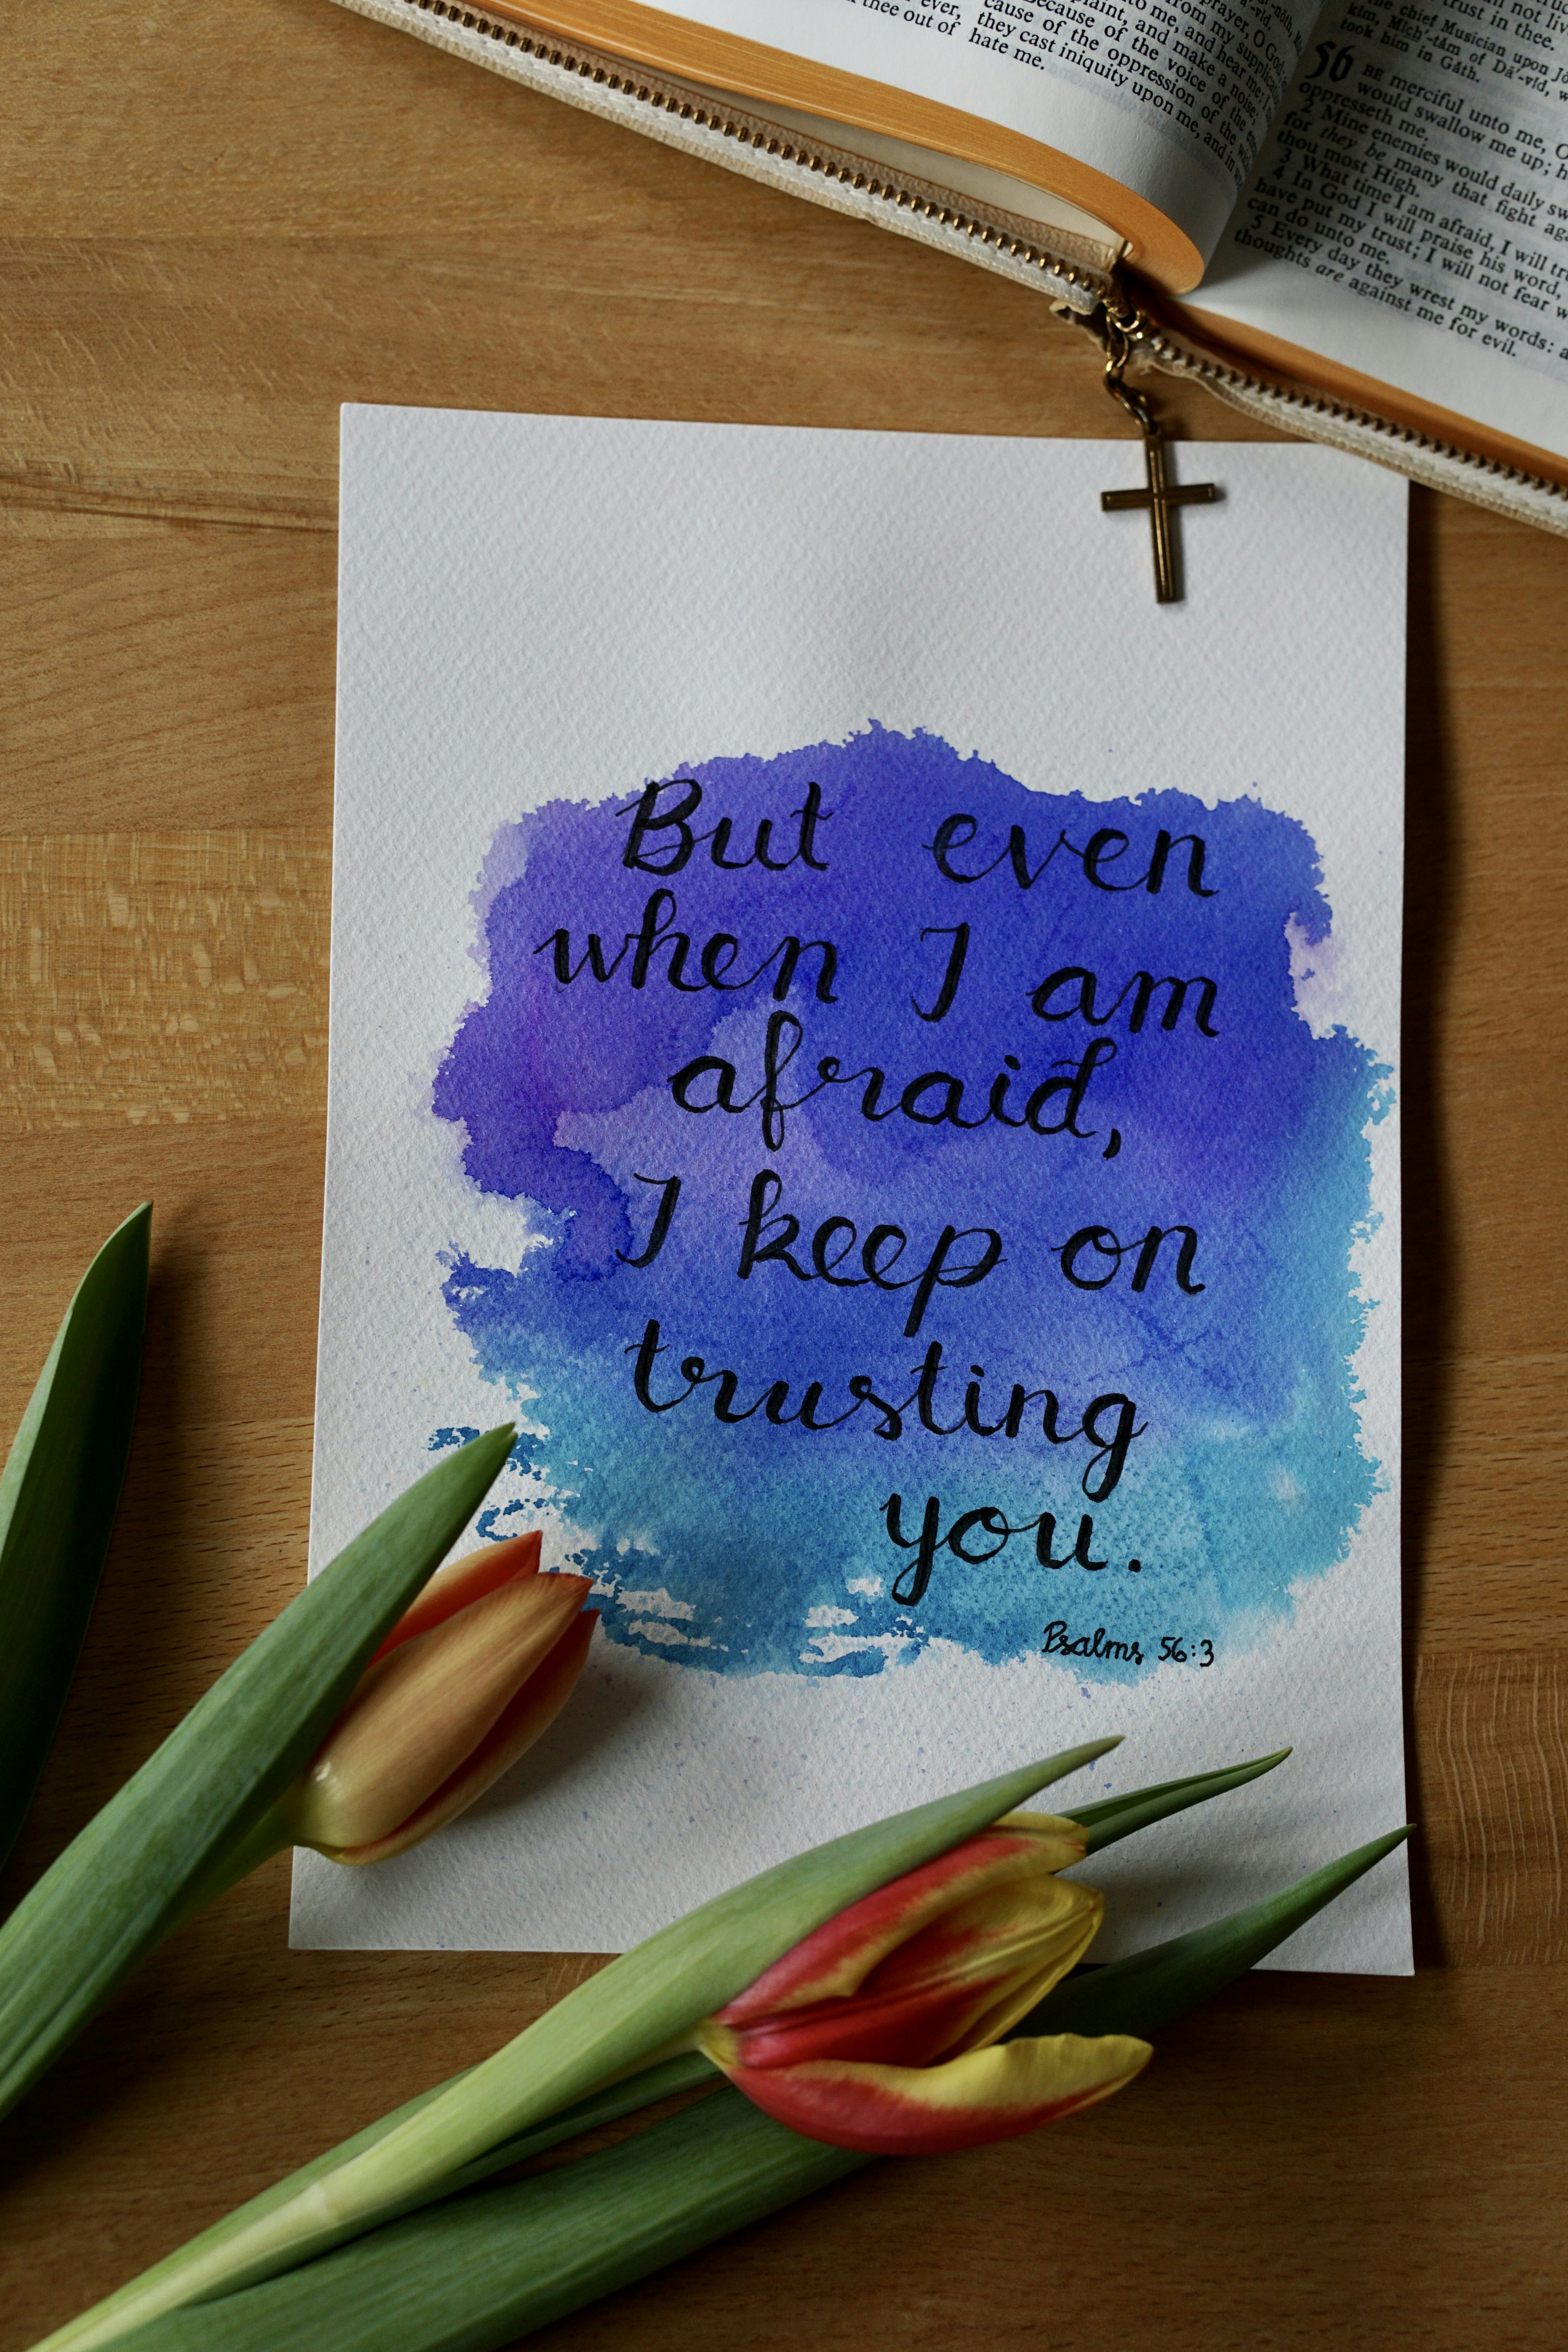 thee out of hate me.
ever, they cast iniquity upon me, and in
cause of the oppression of the
Because of the voice of the
plaint, and make a noise;
to me, and hear me: I
from my supplica
prayer, O God
not liv
trust in thee.
the chief Musician upon
kim, Mich'-tăm of Dā'-vĭd,
took him in Găth.
56 BE merciful unto me, O
would swallow me up; h
oppresseth me.
2 Mine enemies would daily sw
for they be many that fight ag
thou most High.
3 What time I am afraid, I will tr
4 In God I will praise his word,
have put my trust; I will not fear w
can do unto me.
5 Every day they wrest my words: a
thoughts are against me for evil.
But even
when I am
afraid,
I keep on
trusting
you.
Psalms 56:3